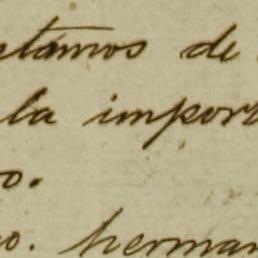 stamos de
la import
o.
o. herman